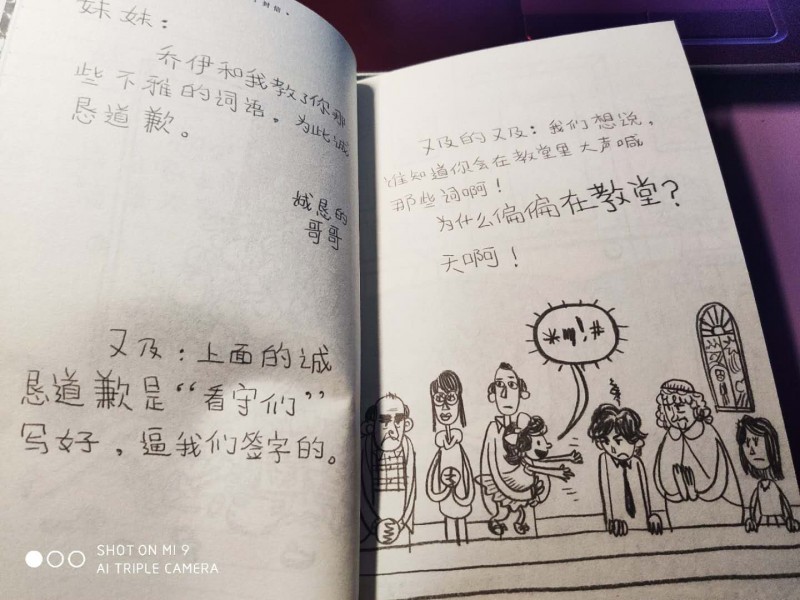 妹妹：
乔伊和我教了你那
些不雅的词语，为此诚
恳道歉。
诚恳的
哥哥
又及：上面的诚
恳道歉是“看守们”
写好，逼我们签字的。
又及的又及：我们想说，
谁知道你会在教堂里大声喊
那些词啊！
为什么偏偏在教堂？
天啊！
*#!;#
SHOT ON MI 9
AI TRIPLE CAMERA